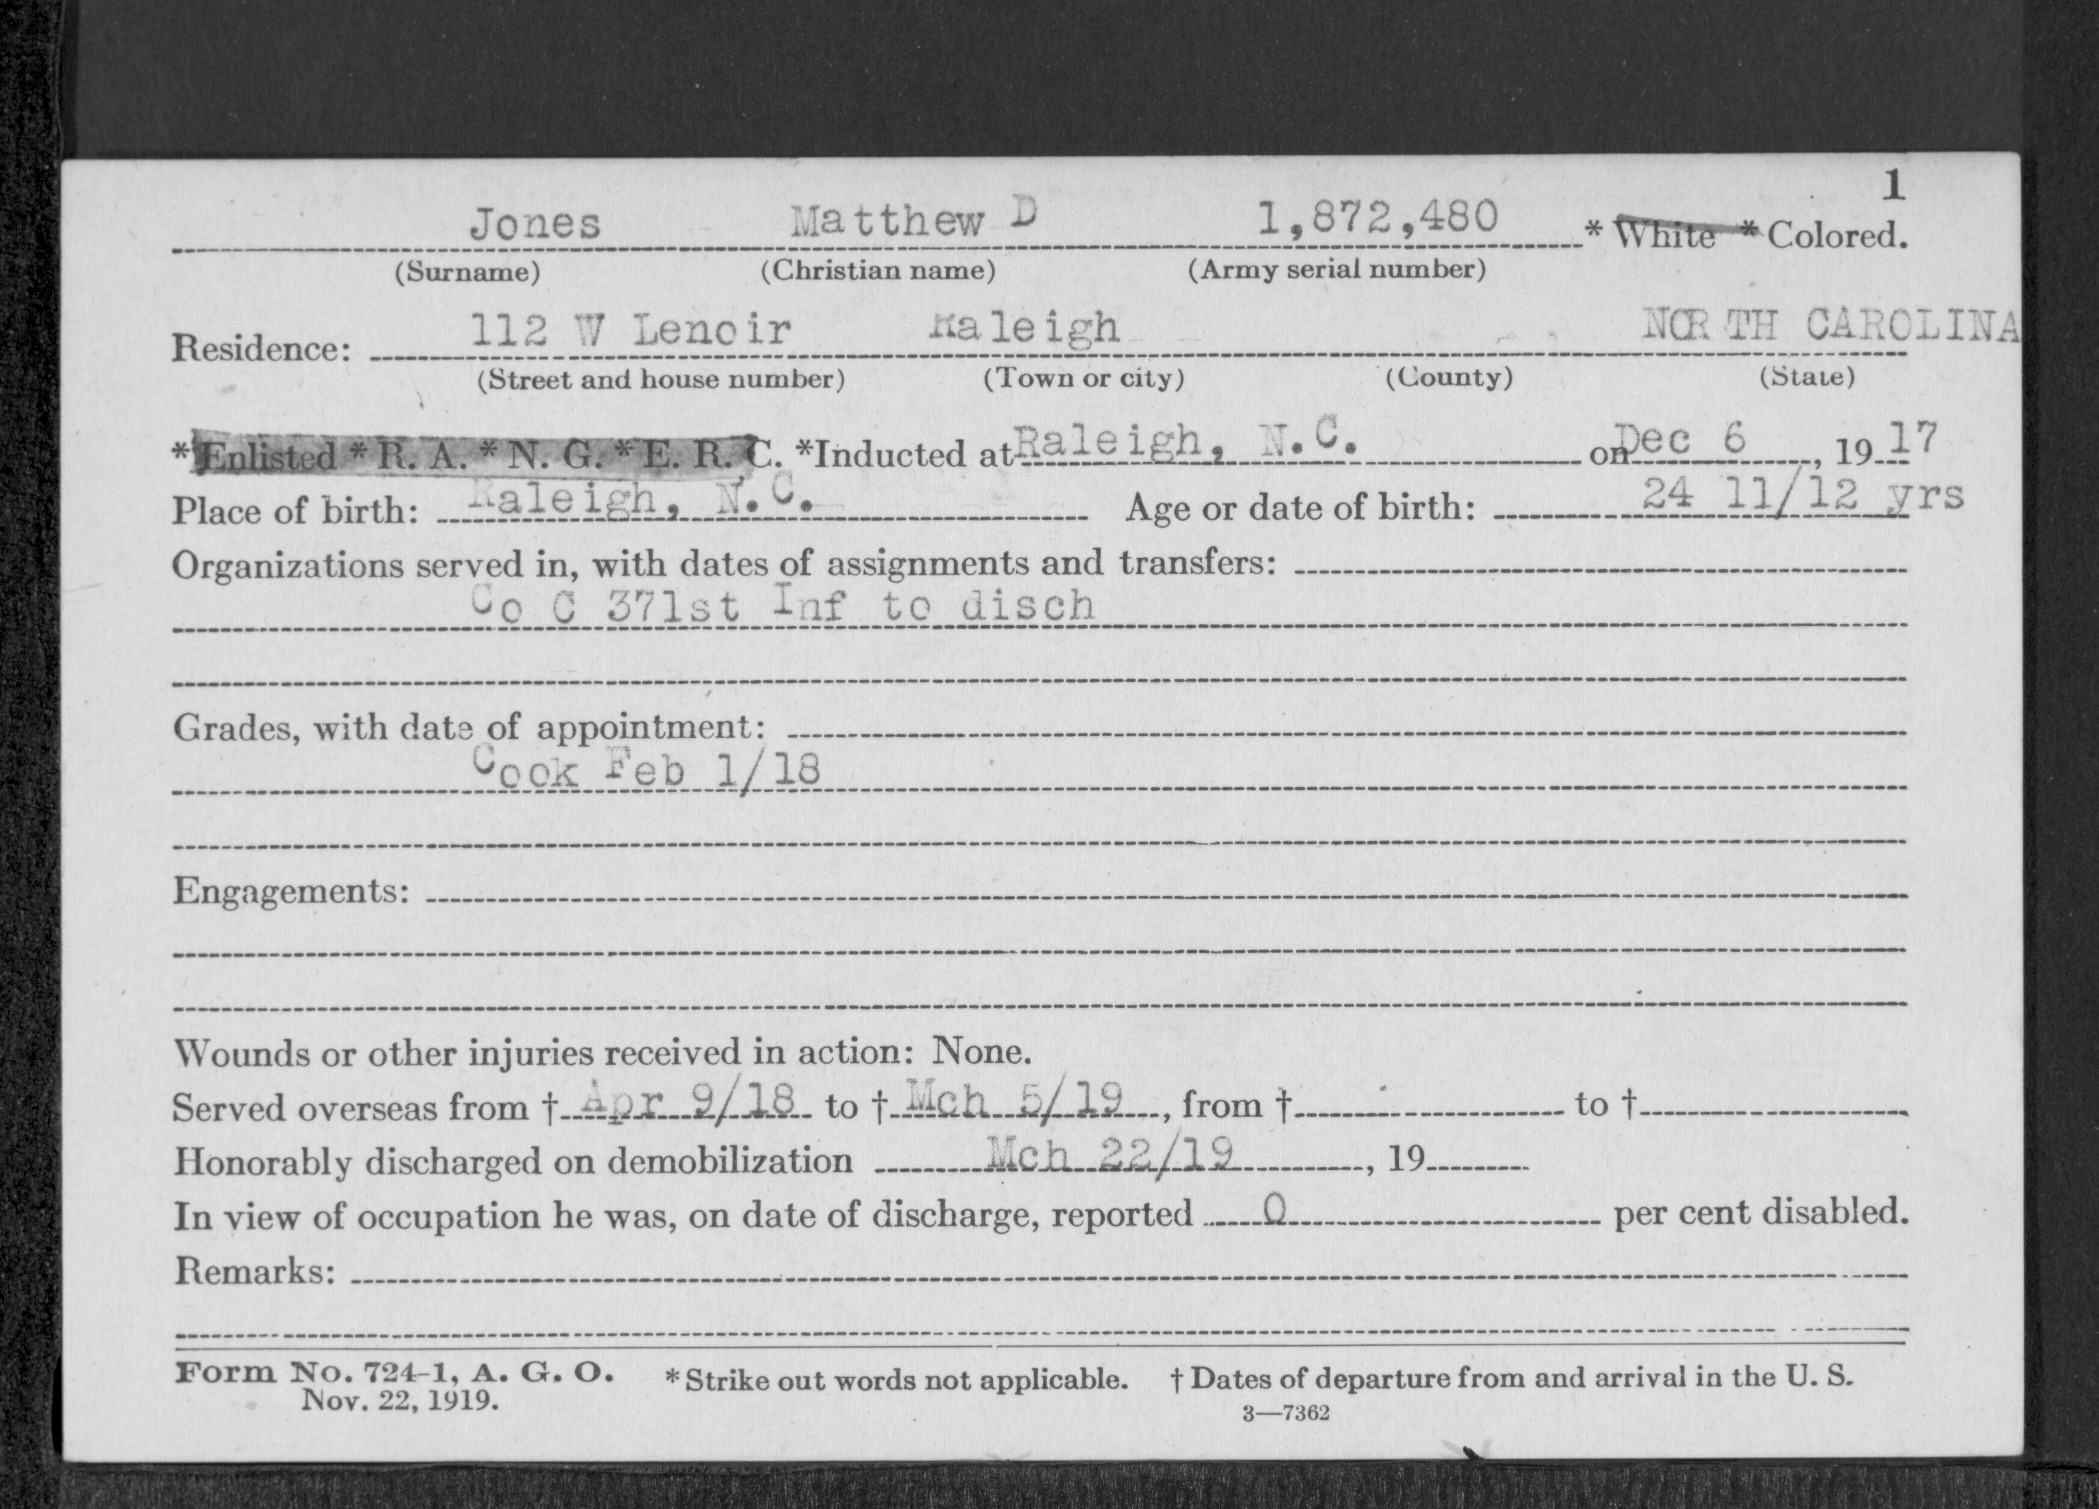 1
Jones Matthew D 1,872,480 * White * Colored.
(Surname) (Christian name) (Army serial number)
Residence: 112 W Lenoir Raleigh NORTH CAROLINA
(Street and house number) (Town or city) (County) (State)
*Enlisted *R. A. *N. G. *E. R. C. *Inducted at Raleigh, N.C. on Dec 6, 1917
Place of birth: Raleigh, N.C. Age or date of birth: 24 11/12 yrs
Organizations served in, with dates of assignments and transfers:
Co C 371st Inf to disch
Grades, with date of appointment:
Cook Feb 1/18
Engagements:
Wounds or other injuries received in action: None.
Served overseas from † Apr 9/18 to † Mch 5/19, from † to †
Honorably discharged on demobilization Mch 22/19, 19
In view of occupation he was, on date of discharge, reported 0 per cent disabled.
Remarks:
Form No. 724-1, A. G. O. *Strike out words not applicable. † Dates of departure from and arrival in the U. S.
Nov. 22, 1919. 3—7362